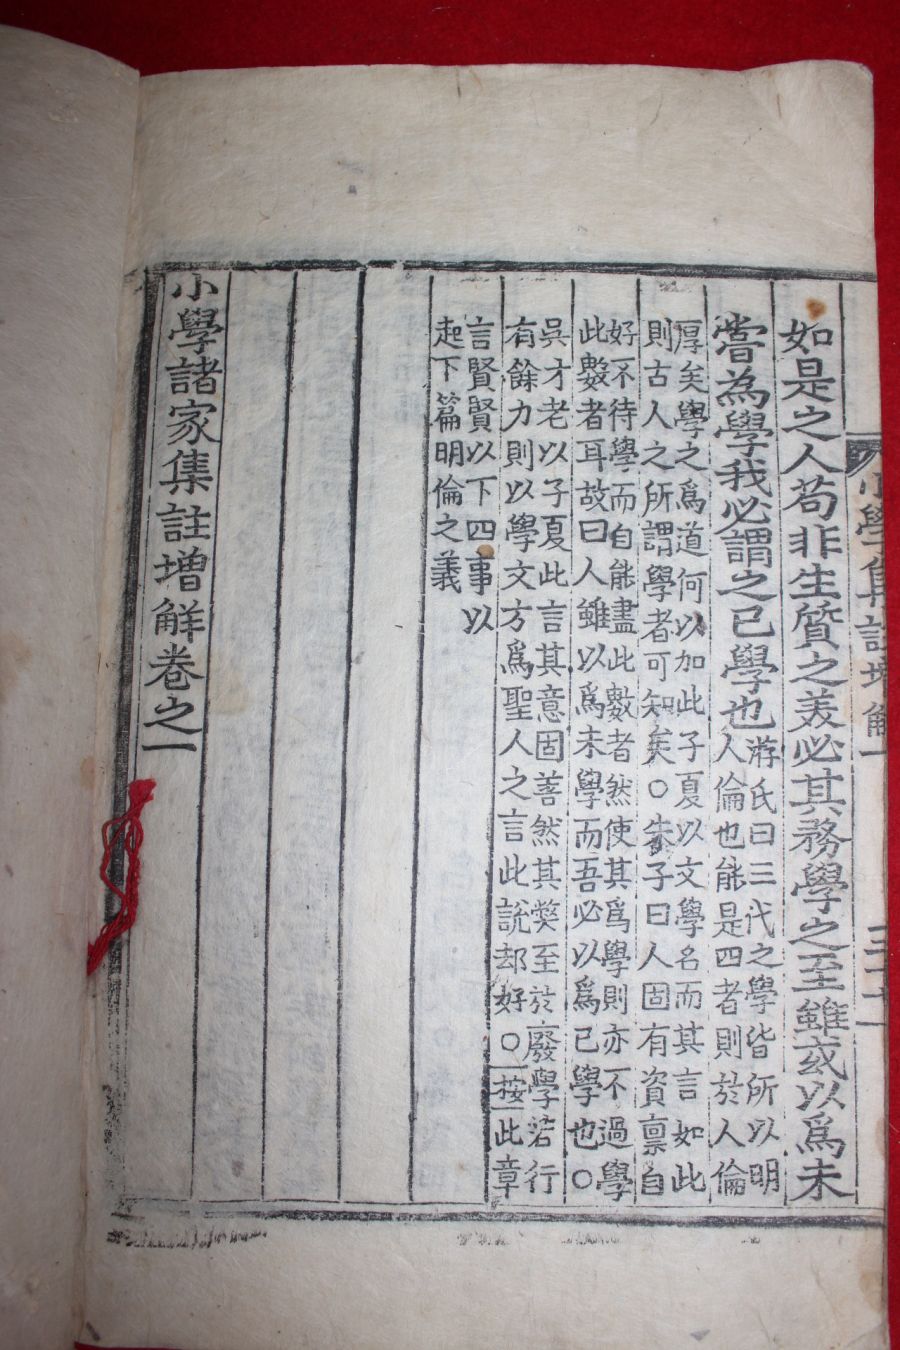 小學集註增解一 三十一
如是之人苟非生質之美必其務學之至雖或以爲未
嘗為學我必謂之已學也游氏曰三代之學皆所以明
人倫也能是四者則於人倫
厚矣學之爲道何以加此子夏以文學名而其言如此
則古人之所謂學者可知矣○朱子曰人固有資稟自
好不待學而自能盡此數者然使其爲學則亦不過學
此數者耳故曰人雖以爲未學而吾必以爲已學也○
吳才老以子夏此言其意固善然其獘至於廢學若行
有餘力則以學文方爲聖人之言此說却好○按此章
言賢賢以下四事以
起下篇明倫之義
小學諸家集註增解卷之一